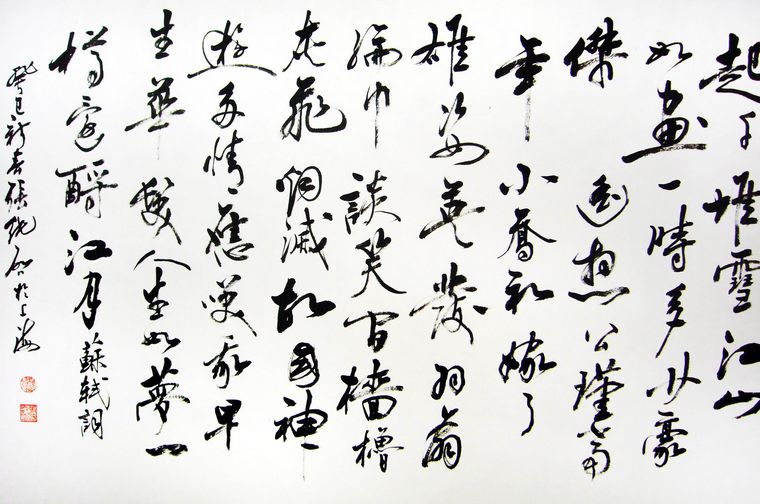 起千堆雪江山
如画一時多少豪
傑遥想公瑾當
年小喬初嫁了
雄姿英發羽扇
綸巾談笑間檣櫓
灰飛烟滅故國神
遊多情應笑我早
生華髮人生如夢一
樽還酹江月蘇軾詞
癸巳新春張於上海